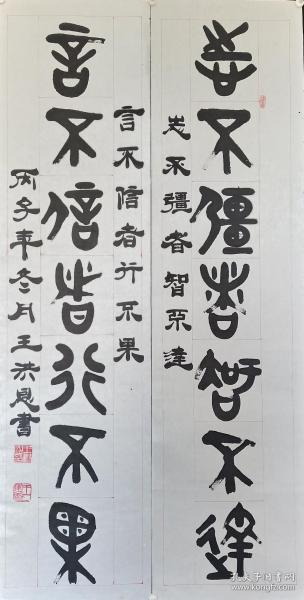 志不彊者智不達
志不彊者智不達
言不信者行不果
言不信者行不果
丙子年冬月王洪恩書
孔夫子旧书网